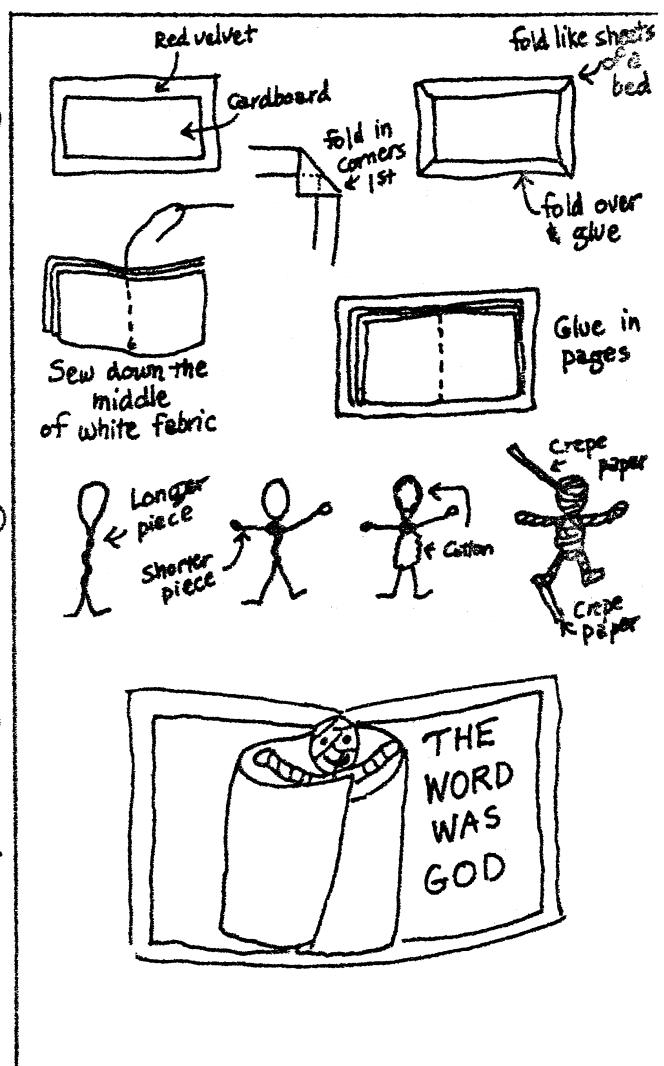 Red velvet
Cardboard
fold in
corners
1st
fold like sheets
of a
bed
fold over
& glue
Sew down the
middle
of white fabric
Glue in
pages
Longer
piece
Shorter
piece
Cotton
Crepe
paper
Crepe
paper
THE
WORD
WAS
GOD